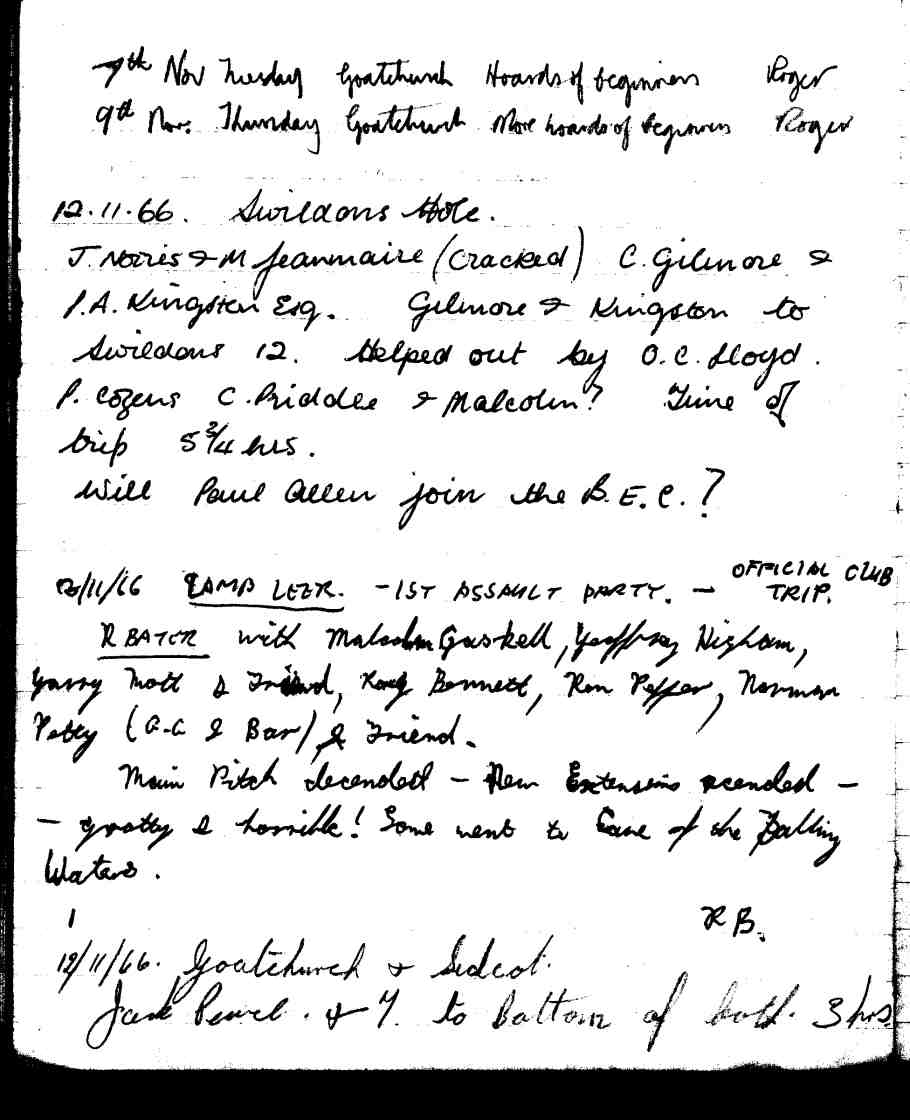 7th Nov Tuesday Goatchurch Hoards of beginners Roger
9th Nov. Thursday Goatchurch More hoards of beginners Roger
12.11.66. Swildons Hole.
J. Norris & M Jeanmaire (Cracked) C. Gilmore &
P.A. Kingston Esq. Gilmore & Kingston to
Swildons 12. Helped out by O.C. Lloyd.
P. Cozens C. Priddle & Malcolm? Time of
trip 5 3/4 hrs.
Will Paul Allen join the B.E.C.?
/11/66 LAMB LEER. - 1ST ASSAULT PARTY. - OFFICIAL CLUB
TRIP.
R BATER with Malcolm Gaskell, Geoffrey Higham,
Garry Mott & Friend, Bennett, Ron Pepper, Norman
Petty (G-G & Bar) & Friend.
Main Pitch decended - New Extensions acended -
- grotty & horrible! Some went to Cave of the Falling
Waters.
R B.
12/11/66. Goatchurch & Sidcot.
Jack & 7. to Bottom of both. 3 hrs.